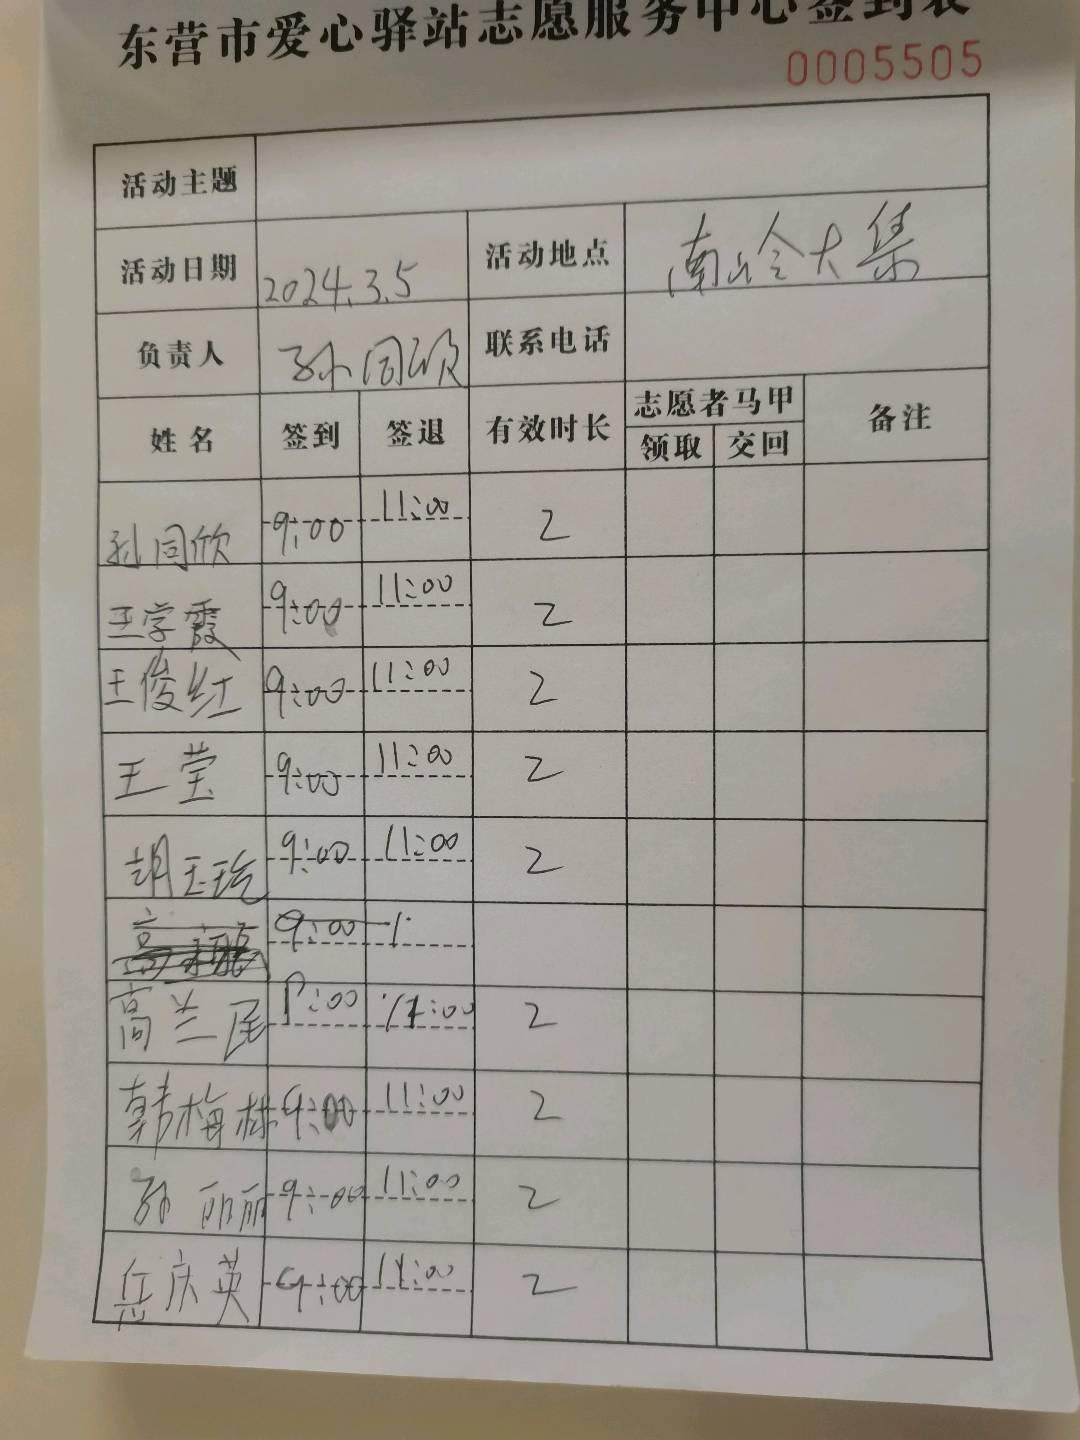 东营市爱心驿站志愿服务中心签到表
0005505
活动主题
活动日期 2024.3.5 活动地点 南岭大集
负责人 孙同欣 联系电话
姓名 签到 签退 有效时长 志愿者马甲 备注
领取 交回
孙同欣 9:00 11:00 2
王学霞 9:00 11:00 2
王俊红 9:00 11:00 2
王莹 9:00 11:00 2
胡玉玩 9:00 11:00 2
高 9:00
高兰尾 9:00 11:00 2
韩梅林 9:00 11:00 2
孙丽丽 9:00 11:00 2
岳庆英 9:00 11:00 2